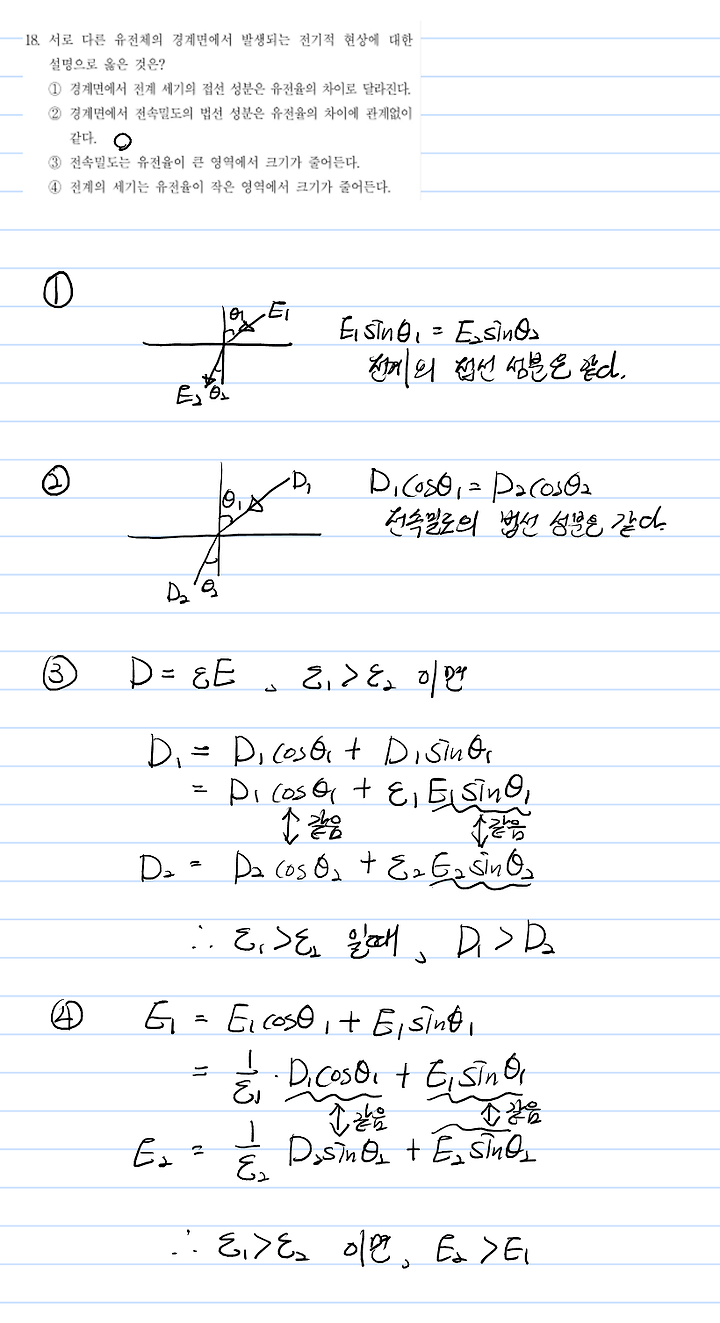 18. 서로 다른 유전체의 경계면에서 발생되는 전기적 현상에 대한
설명으로 옳은 것은?
① 경계면에서 전계 세기의 접선 성분은 유전율의 차이로 달라진다.
② 경계면에서 전속밀도의 법선 성분은 유전율의 차이에 관계없이
같다. O
③ 전속밀도는 유전율이 큰 영역에서 크기가 줄어든다.
④ 전계의 세기는 유전율이 작은 영역에서 크기가 줄어든다.
①
θ₁ E₁
E₂ θ₂
E₁sinθ₁ = E₂sinθ₂
전계의 접선 성분은 같다.
②
θ₁ D₁
D₂ θ₂
D₁cosθ₁ = D₂cosθ₂
전속밀도의 법선 성분은 같다.
③ D = εE , ε₁ > ε₂ 이면
D₁ = D₁cosθ₁ + D₁sinθ₁
= D₁cosθ₁ + ε₁E₁sinθ₁
↕ 같음 ↕ 같음
D₂ = D₂cosθ₂ + ε₂E₂sinθ₂
∴ ε₁>ε₂ 일때, D₁ > D₂
④ E₁ = E₁cosθ₁ + E₁sinθ₁
= 1/ε₁ · D₁cosθ₁ + E₁sinθ₁
↕ 같음 ↕ 같음
E₂ = 1/ε₂ D₂sinθ₂ + E₂sinθ₂
∴ ε₁>ε₂ 이면, E₂ > E₁